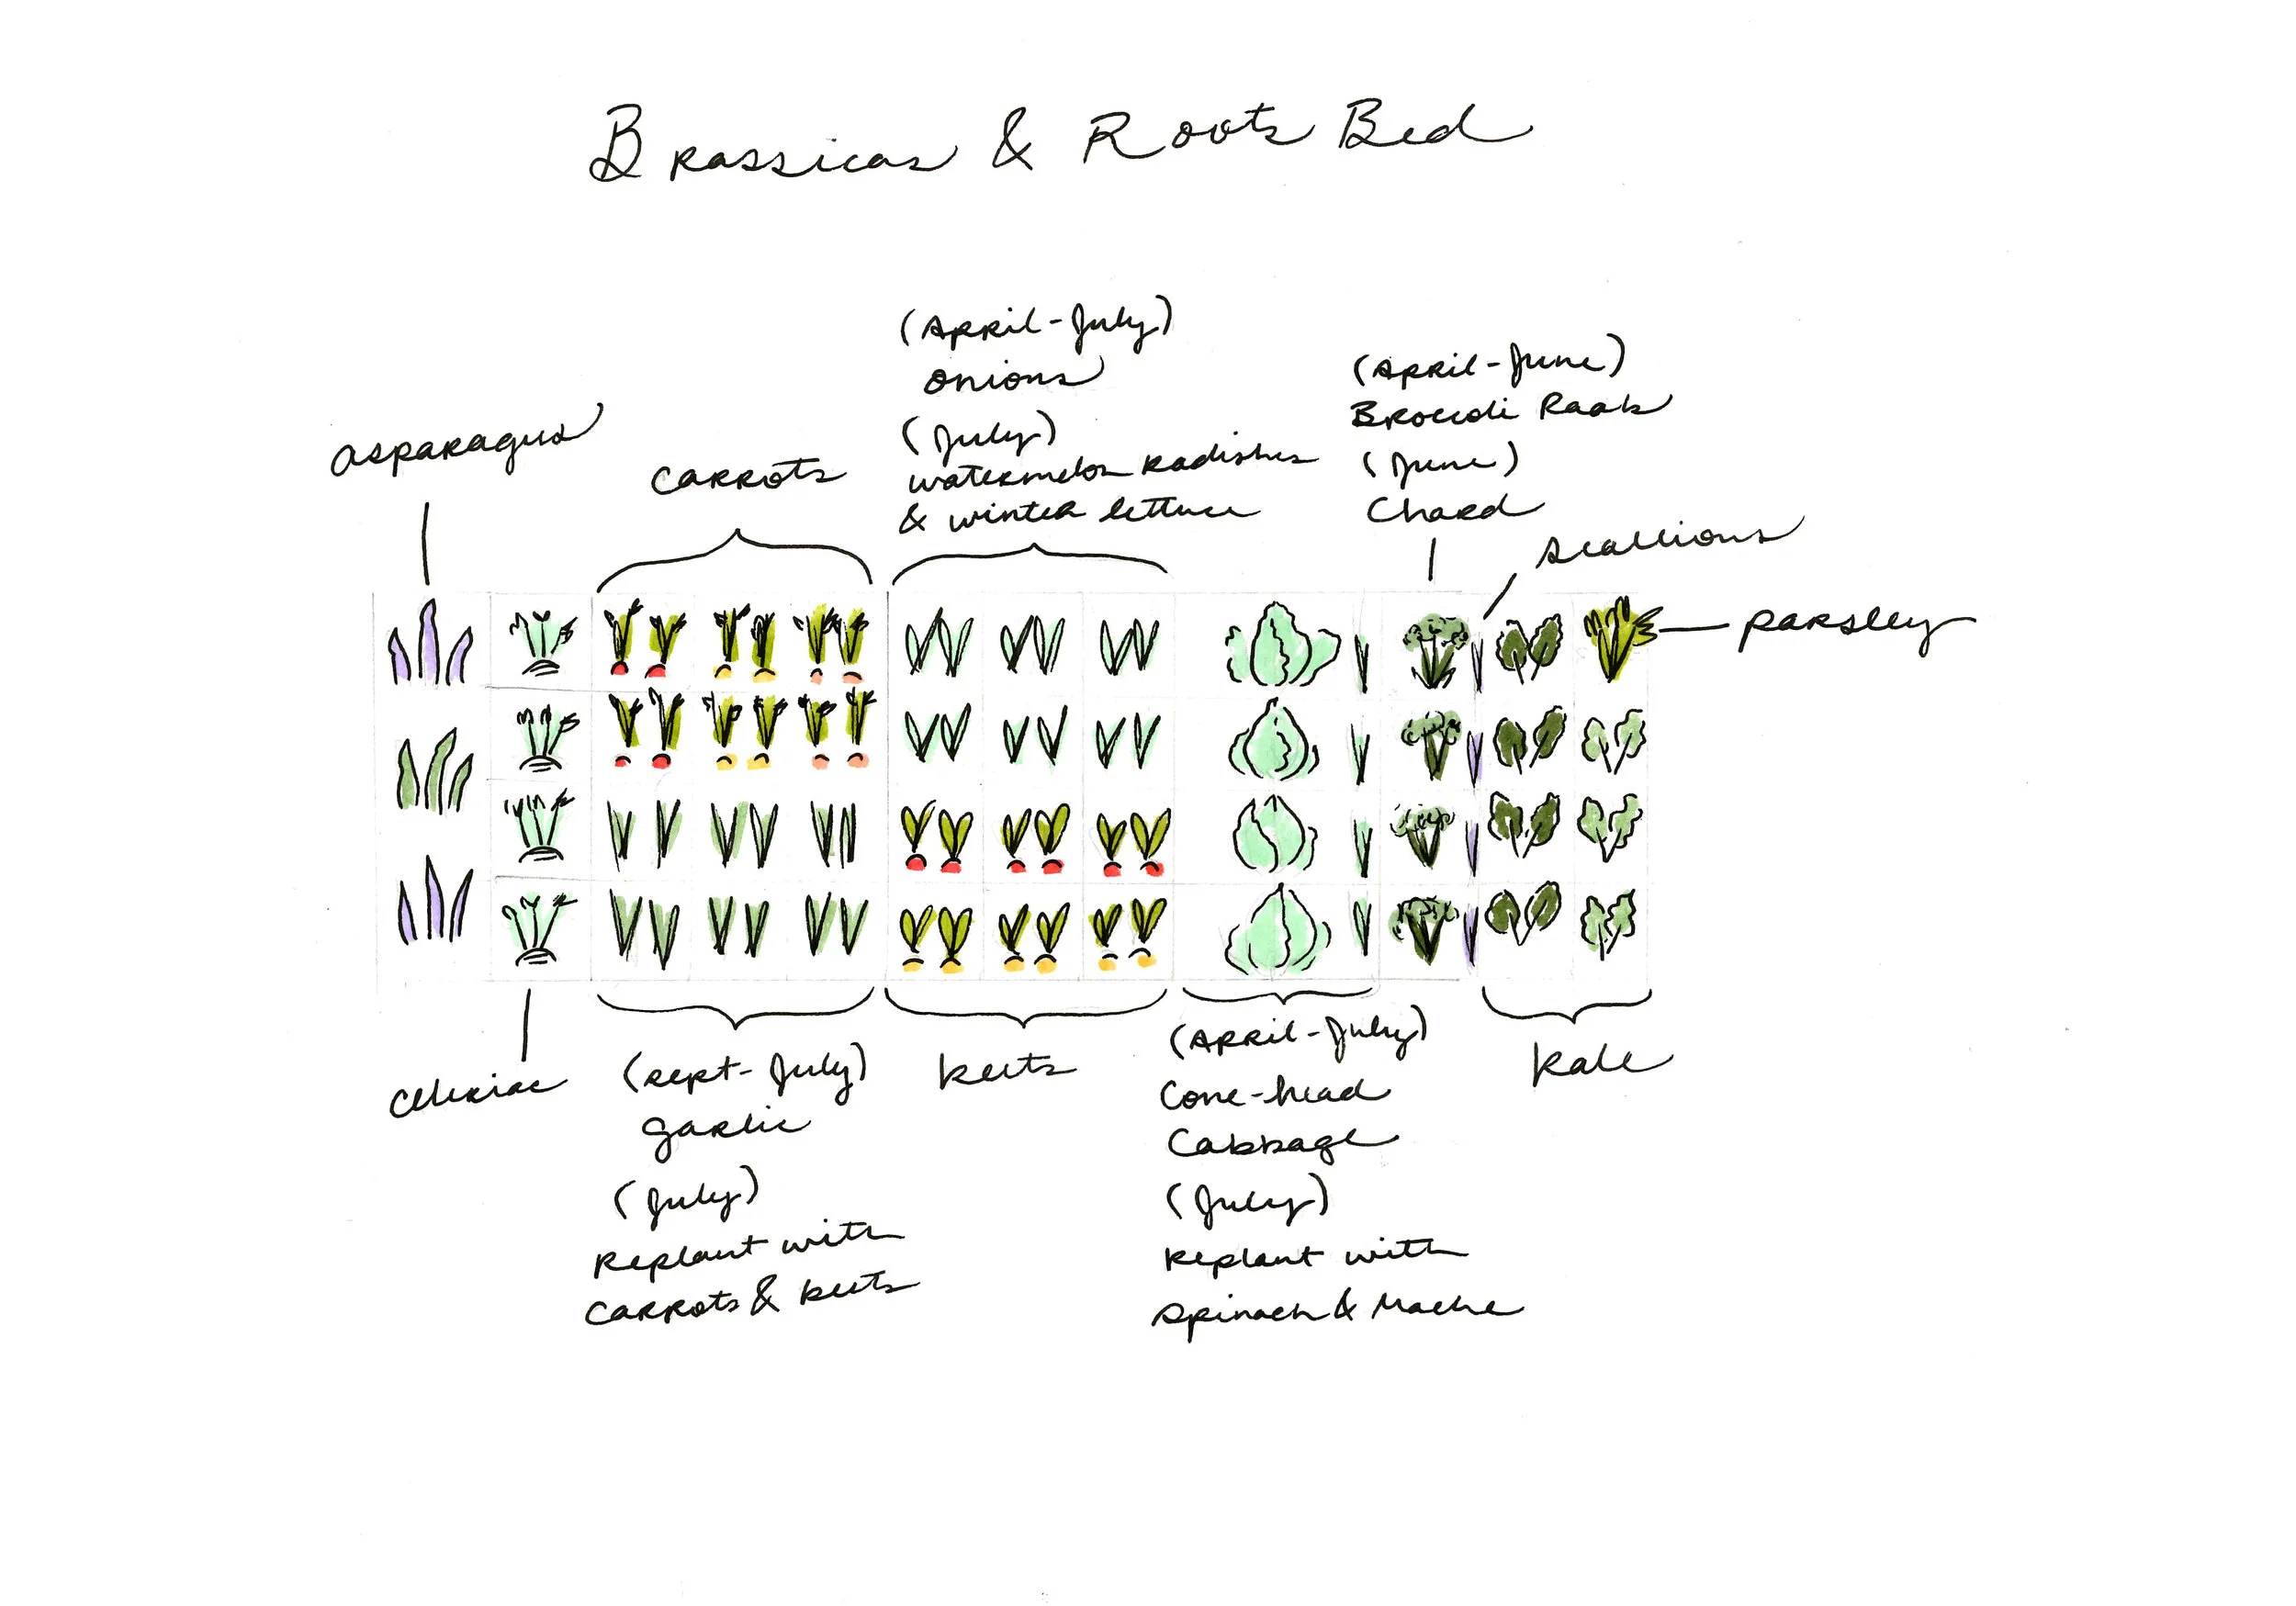 Brassicas & Roots Bed
asparagus
carrots
(April-July)
onions
(July)
watermelon radishes
& winter lettuce
(April-June)
Broccoli Raab
(June)
Chard
scallions
parsley
celeriac
(sept-July)
garlic
(July)
Replant with
carrots & beets
beets
(April-July)
Cone-head
Cabbage
(July)
Replant with
spinach & Mache
kale